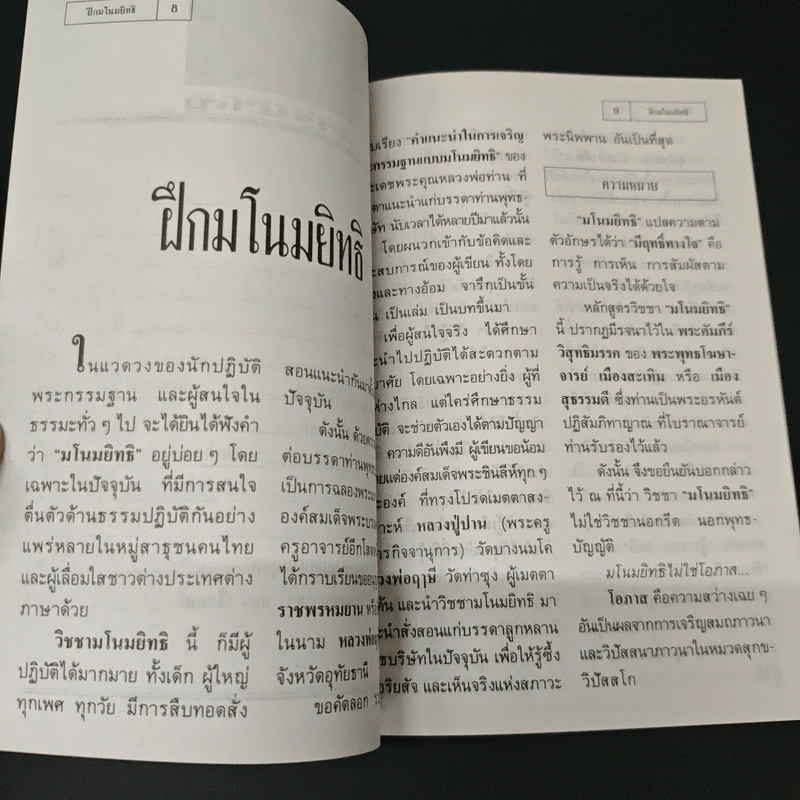 ฝึกมโนมยิทธิ 8
ฝึกมโนมยิทธิ
ในแวดวงของนักปฏิบัติ
พระกรรมฐาน และผู้สนใจใน
ธรรมะทั่ว ๆ ไป จะได้ยินได้ฟังคำ
ว่า “มโนมยิทธิ” อยู่บ่อย ๆ โดย
เฉพาะในปัจจุบัน ที่มีการสนใจ
ตื่นตัวด้านธรรมปฏิบัติกันอย่าง
แพร่หลายในหมู่สาธุชนคนไทย
และผู้เลื่อมใสชาวต่างประเทศต่าง
ภาษาด้วย
วิชชามโนมยิทธิ นี้ ก็มีผู้
ปฏิบัติได้มากมาย ทั้งเด็ก ผู้ใหญ่
ทุกเพศ ทุกวัย มีการสืบทอดสั่ง
สอนแนะนำกันมา
ปัจจุบัน
ดังนั้น ด้วย
ต่อบรรดาท่านพุทธ
เป็นการฉลองพระ
องค์สมเด็จพระบรม
ครูอาจารย์อีกโสด
ได้กราบเรียนขอ
ราชพรหมยาน หรือ
ในนาม หลวงพ่อ
จังหวัดอุทัยธานี
ขอคัดลอก
9 ฝึกมโนมยิทธิ
เรียง “คำแนะนำในการเจริญ
กรรมฐานแบบมโนมยิทธิ” ของ
เดชพระคุณหลวงพ่อท่าน ที่
แนะนำแก่บรรดาท่านพุทธ-
ษัท นับเวลาได้หลายปีมาแล้วนั้น
โดยผนวกเข้ากับข้อคิดและ
สบการณ์ของผู้เขียน ทั้งโดย
และทางอ้อม จารึกเป็นขั้น
เป็นเล่ม เป็นบทขึ้นมา
เพื่อผู้สนใจจริง ได้ศึกษา
นำไปปฏิบัติได้สะดวกตาม
อาศัย โดยเฉพาะอย่างยิ่ง ผู้ที่
ห่างไกล แต่ใคร่ศึกษาธรรม
บัติ จะช่วยตัวเองได้ตามปัญญา
ความดีอันพึงมี ผู้เขียนขอน้อม
แด่องค์สมเด็จพระชินสีห์ทุก ๆ
องค์ ที่ทรงโปรดเมตตาสง-
เคราะห์ หลวงปู่ปาน (พระครู
กิจจานุการ) วัดบางนมโค
หลวงพ่อฤๅษี วัดท่าซุง ผู้เมตตา
และนำวิชชามโนมยิทธิ มา
นำสั่งสอนแก่บรรดาลูกหลาน
บริษัทในปัจจุบัน เพื่อให้รู้ซึ้ง
อริยสัจ และเห็นจริงแห่งสภาวะ
พระนิพพาน อันเป็นที่สุด
ความหมาย
“มโนมยิทธิ” แปลความตาม
ตัวอักษรได้ว่า “มีฤทธิ์ทางใจ” คือ
การรู้ การเห็น การสัมผัสตาม
ความเป็นจริงได้ด้วยใจ
หลักสูตรวิชชา “มโนมยิทธิ”
นี้ ปรากฏมีรจนาไว้ใน พระคัมภีร์
วิสุทธิมรรค ของ พระพุทธโฆษา-
จารย์ เมืองสะเทิม หรือ เมือง
สุธรรมดี ซึ่งท่านเป็นพระอรหันต์
ปฏิสัมภิทาญาณ ที่โบราณาจารย์
ท่านรับรองไว้แล้ว
ดังนั้น จึงขอยืนยันบอกกล่าว
ไว้ ณ ที่นี้ว่า วิชชา “มโนมยิทธิ”
ไม่ใช่วิชชานอกรีต นอกพุทธ-
บัญญัติ
มโนมยิทธิไม่ใช่โอภาส...
โอภาส คือความสว่างเฉย ๆ
อันเป็นผลจากการเจริญสมถภาวนา
และวิปัสสนาภาวนาในหมวดสุกข-
วิปัสสโก